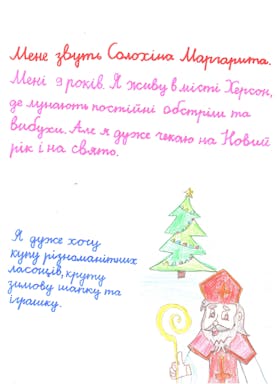 Мене звуть Солохіна Маргарита.
Мені 9 років. Я живу в місті Херсон,
де лунають постійні обстріли та
вибухи. Але я дуже чекаю на Новий
рік і на свято.
Я дуже хочу
купу різноманітних
ласощів, круту
зимову шапку та
іграшку.